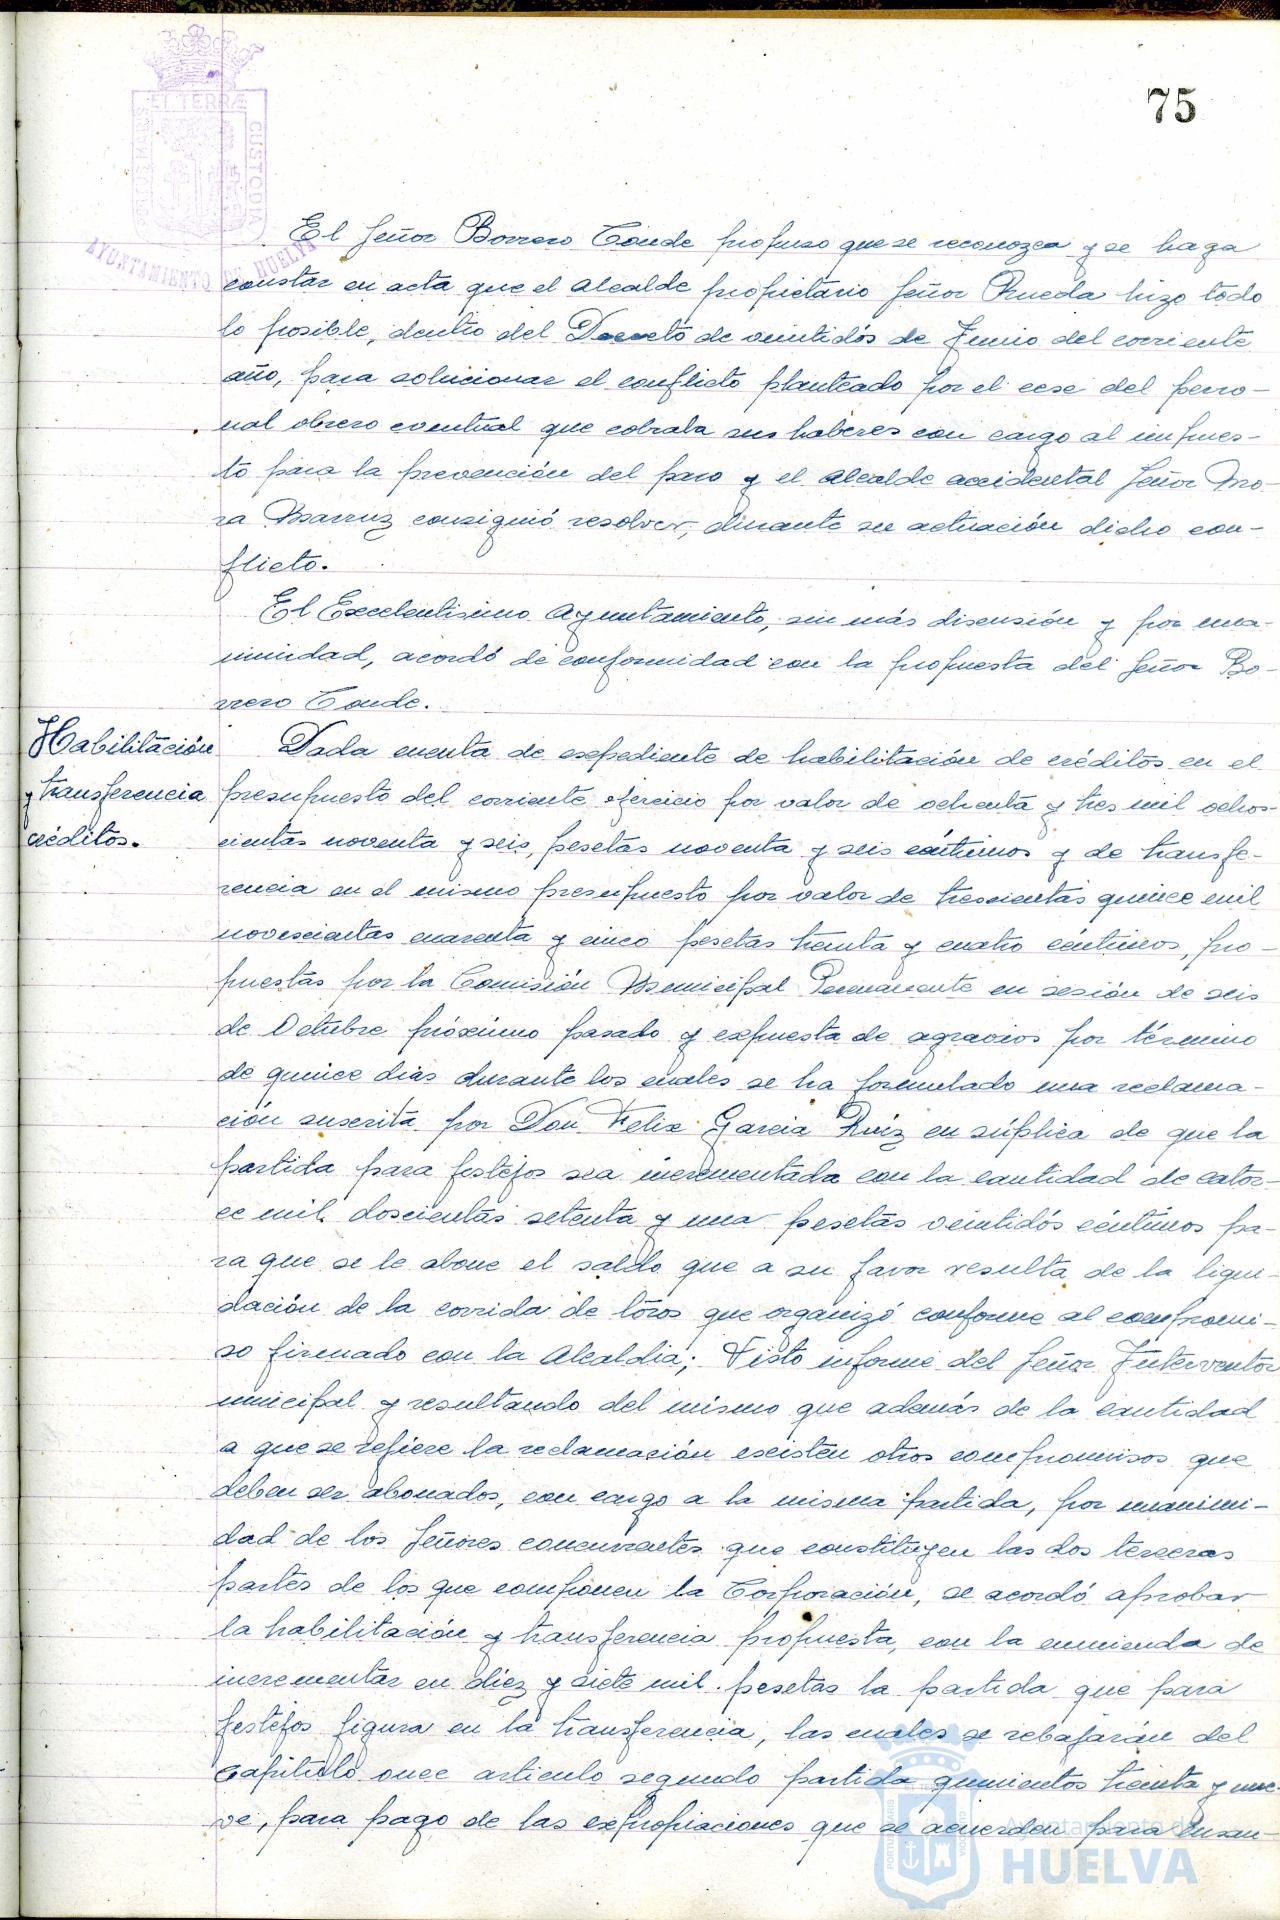 75
PORTUS MARIS ET TERRÆ CUSTODIA
AYUNTAMIENTO DE HUELVA
El Señor Borrero Conde propuso que se reconozca y se haga
constar en acta que el Alcalde propietario Señor Rueda hizo todo
lo posible, dentro del Decreto de veintidós de Junio del corriente
año, para solucionar el conflicto planteado por el cese del perso-
nal obrero eventual que cobraba sus haberes con cargo al impues-
to para la prevención del paro y el Alcalde accidental Señor Mo-
ra Marruz consiguió resolver, durante su actuación dicho con-
flicto.
El Excelentisimo Ayuntamiento, sin más discusión y por una-
nimidad, acordó de conformidad con la propuesta del Señor Bo-
rrero Conde.
Habilitación
y transferencia
créditos.
Dada cuenta de expediente de habilitación de créditos en el
presupuesto del corriente ejercicio por valor de ochenta y tres mil ochos-
cientas noventa y seis, pesetas noventa y seis céntimos y de transfe-
rencia en el mismo presupuesto por valor de trescientas quince mil
novescientas cuarenta y cinco pesetas treinta y cuatro céntimos, pro-
puestas por la Comisión Municipal Permanente en sesión de seis
de Octubre próximo pasado y expuesta de agravios por término
de quince dias durante los cuales se ha formulado una reclama-
ción suscrita por Don Felix Garcia Ruíz en súplica de que la
partida para festejos sea incrementada con la cantidad de cator-
ce mil doscientas setenta y una pesetas veintidós céntimos pa-
ra que se le abone el saldo que a su favor resulta de la liqui-
dación de la corrida de toros que organizó conforme al compromi-
so firmado con la Alcaldia; Visto informe del Señor Interventor
municipal y resultando del mismo que además de la cantidad
a que se refiere la reclamación existen otros compromisos que
deben ser abonados, con cargo a la misma partida, por unanimi-
dad de los Señores concurrentes que constituyen las dos terceras
partes de los que componen la Corporación, se acordó aprobar
la habilitación y transferencia propuesta, con la enmienda de
incrementar en diez y siete mil pesetas la partida que para
festejos figura en la transferencia, las cuales se rebajarán del
Capítulo once articulo segundo partida quinientos treinta y nue-
ve, para pago de las expropiaciones que se acuerden para ensan-
PORTUS MARIS CUSTODIA
Ayuntamiento de
HUELVA